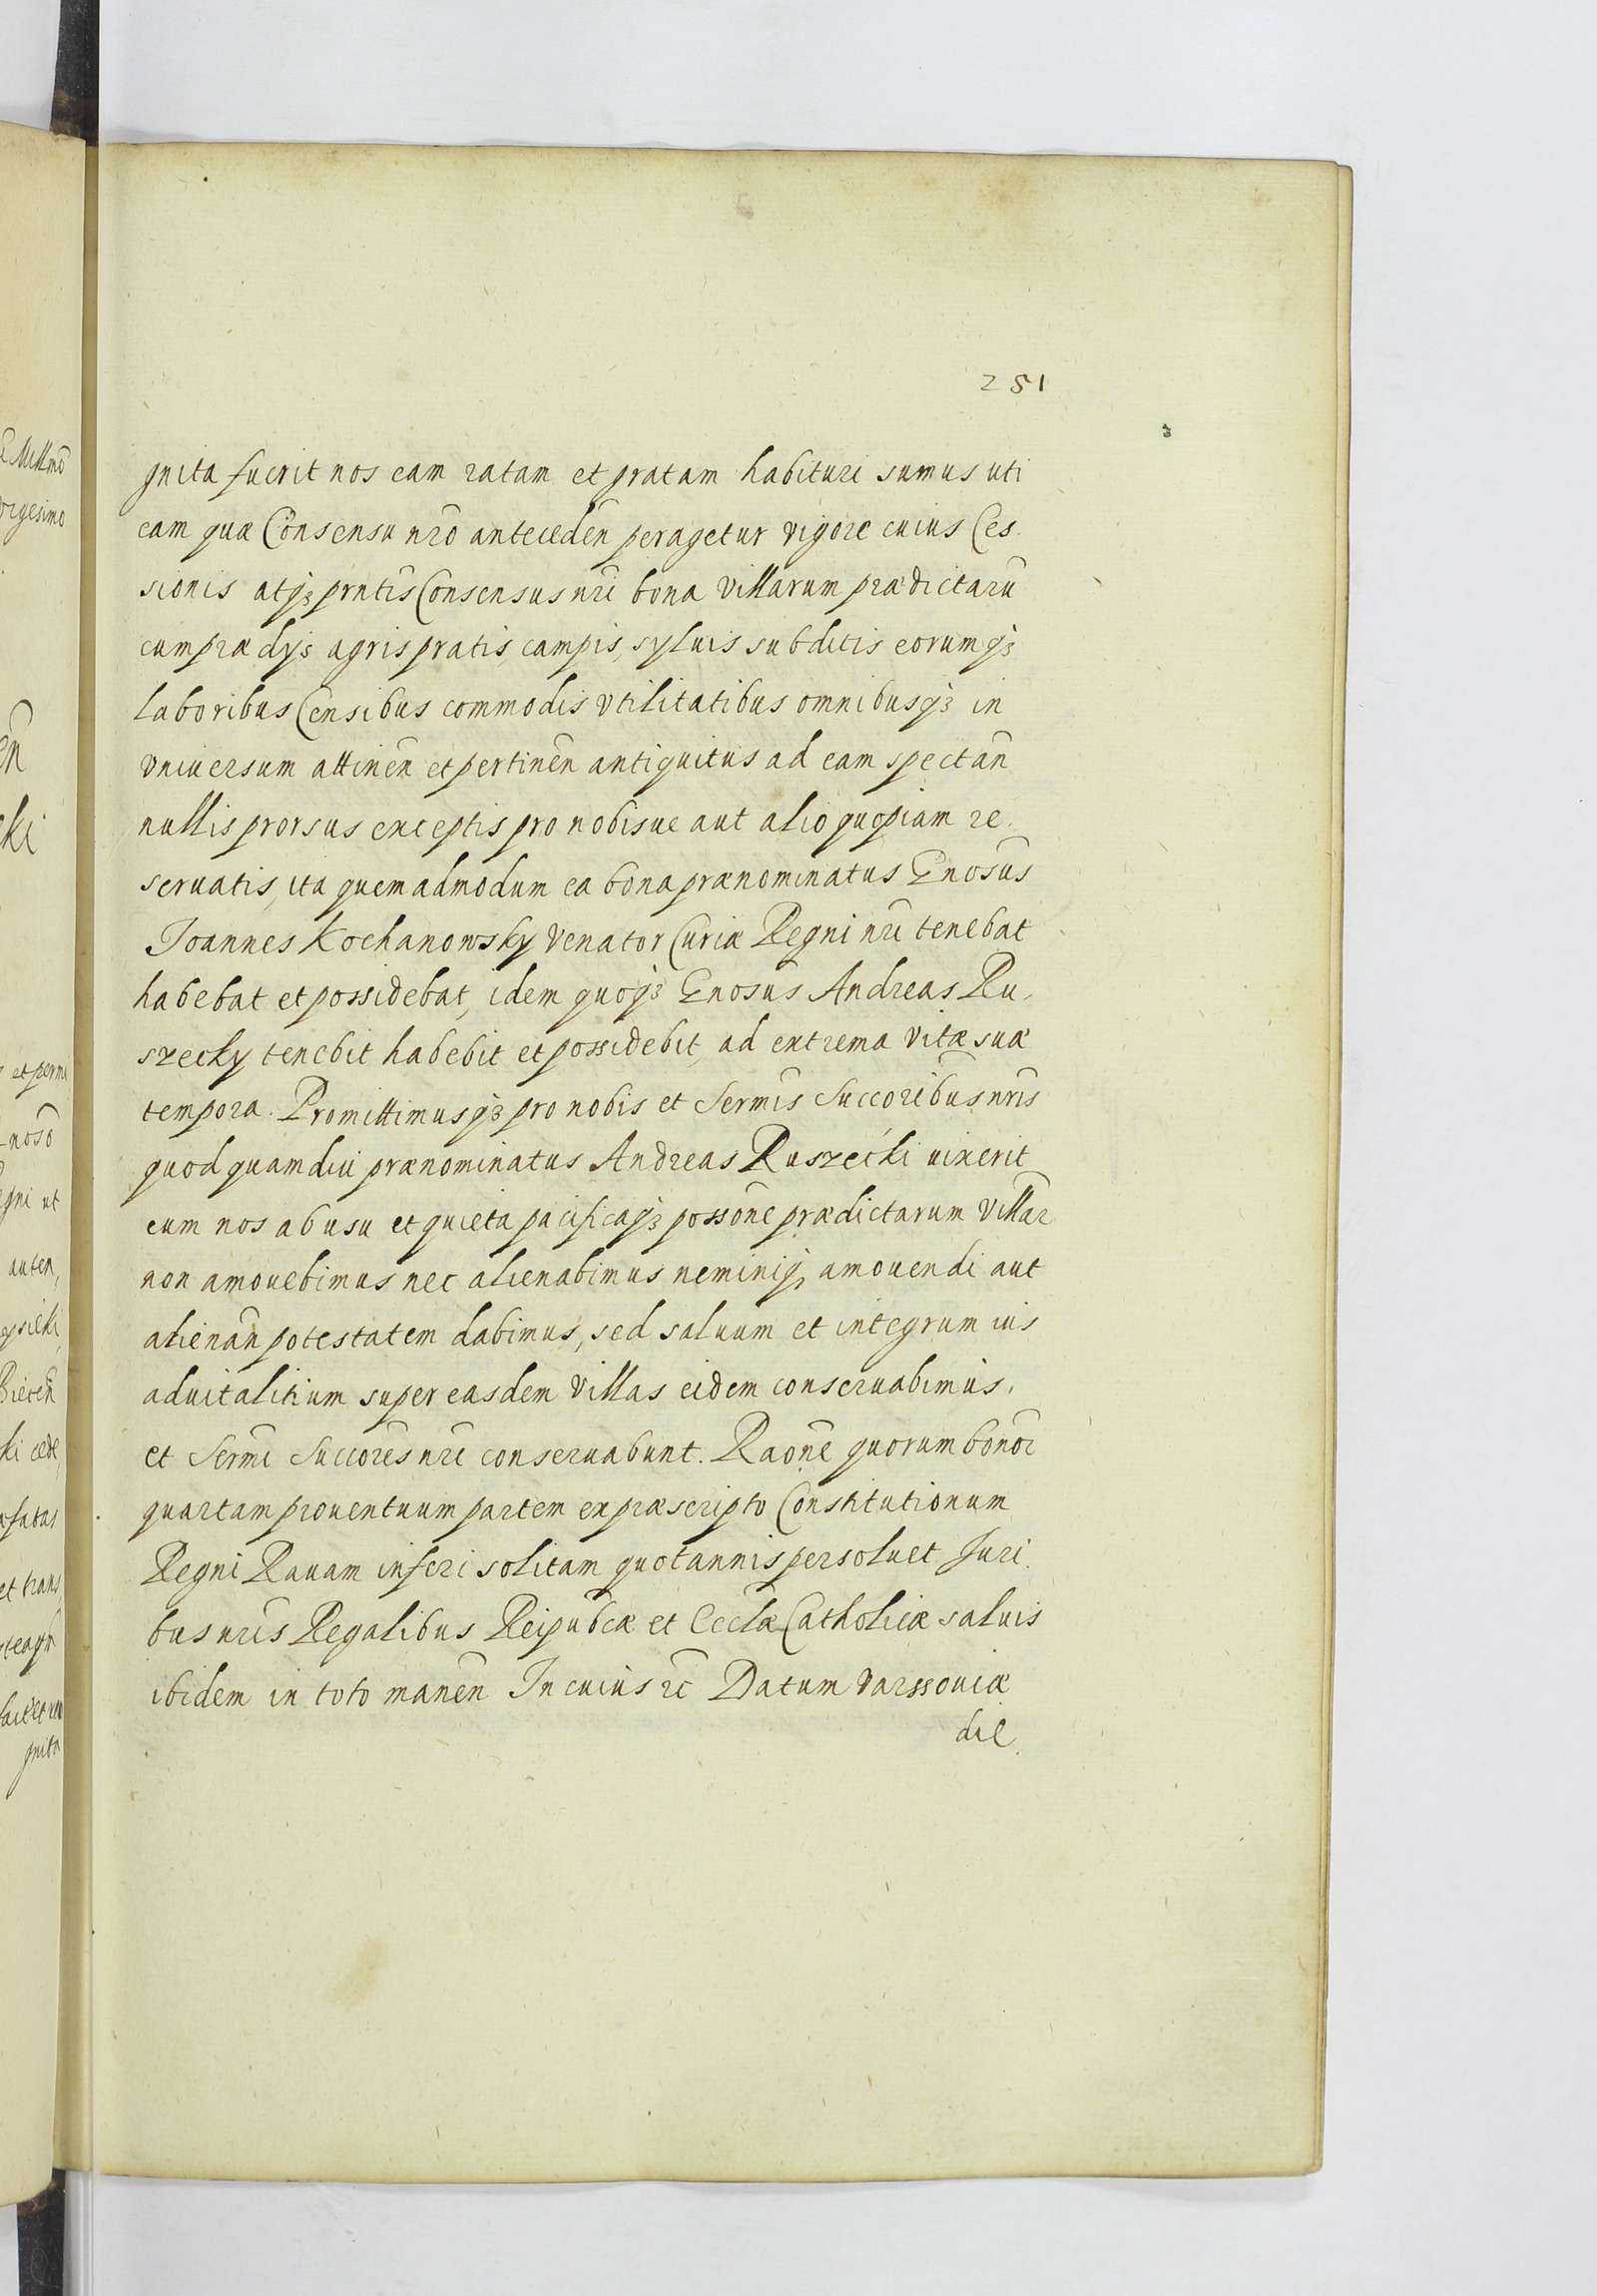 251
gnita fuerit nos eam ratam et gratam habituri sumus uti
eam quæ Consensu nrõ anteceden̄ peragetur vigore cuius Ces
sionis atqꝫ prñtis Consensus nri bona Villarum prædictarũ
cum prædijs agris pratis, campis, syluis subditis eorumqꝫ
laboribus Censibus commodis vtilitatibus omnibusqꝫ in
vniuersum attinen̄ et pertinen̄ antiquitus ad eam spectan̄
nullis prorsus exceptis pro nobisue aut alio quopiam re
seruatis, ita quemadmodum ea bona prænominatus Gnosus
Joannes Kochanowsky Venator Curiæ Regni nri tenebat
habebat et possidebat, idem quoqꝫ Gnosus Andreas Ru,
szecky tenebit habebit et possidebit, ad extrema vitæ suæ
tempora. Promittimusqꝫ pro nobis et Sermis Succoribus nris
quod quamdiu prænominatus Andreas Ruszecki uixerit
eum nos ab usu et quieta pacificaqꝫ possone prædictarum Villar
non amouebimus nec alienabimus neminiqꝫ amouendi aut
alienan̄ potestatem dabimus, sed saluum et integrum ius
aduitalitium super easdem Villas eidem conseruabimus,
et Sermi Succores nri conseruabunt. Raone quorum bonor
quartam prouentuum partem ex præscripto Constitutionum
Regni Rauam inferi solitam quotannis persoluet Juri
bus nris Regalibus Reipubcæ et Ecclæ Catholicæ saluis
ibidem in toto manen̄ In cuius rē Datum Varssouiæ
die